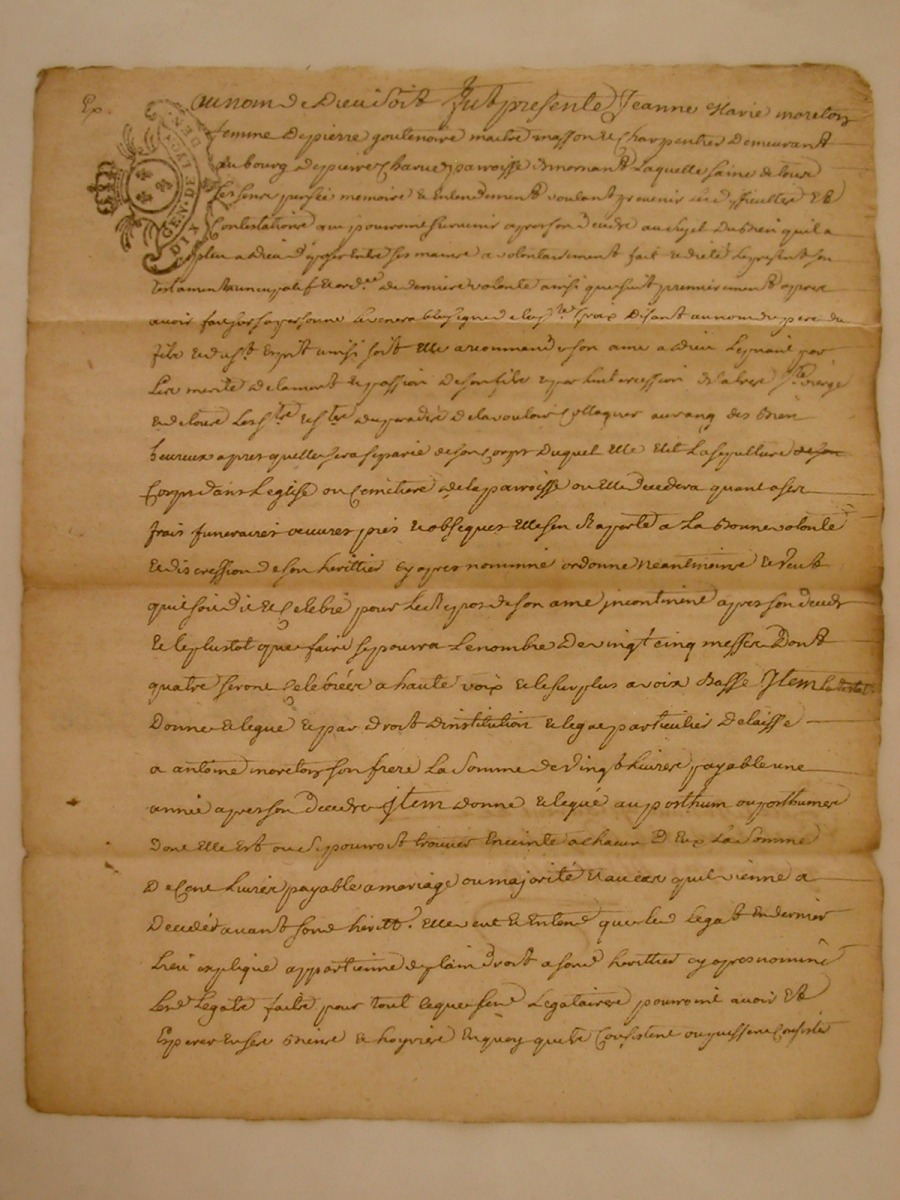 Ex.
GEN. DE LYON
DIX DEN.
au nom de Dieu soit Fut presente Jeanne Marie moreton
femme de pierre goutenoire maitre masson & Charpentier Demeurant
au bourg de pierre Charue parroisse de mornant Laquelle saine de tous
ses sens pensée memoire & Entendement voulant prevenir les difficultés Et
Contestations qui pourront survenir apres son deceds au sujet du bien quil a
plu a Dieu ses mains a volontairement fait & dicté le present son
testament nuncupatif & ord.ce de derniere volonté ainsi que suit premierement apres
avoir fait sur sa personne le venerable signe de la s.te Croix Disant au nom du pere du
fils & du s.t Esprit ainsi soit Elle a recommandé son ame a Dieu le priant par
les merites de la mort & passion de son fils & par lintercession de la tres S.te vierge
& de tous les s.ts & s.tes du paradis de la vouloir Collaquer au rang des Bien
heureux apres quelle sera separée de son Corps Duquel Elle Elit La sepulture de son
Corps dans Leglise ou Cemitiere de la parroisse ou Elle decedera quant a ses
frais funeraires œuvres pies & obseques Elle sen Raporte a La Bonne volonté
& discression de son herittier cy apres nommé ordonne neantmoins & veut
quil soit dit & Celebré pour le Repos de son ame incontinent apres son deceds
& le plustot que faire se pourra Le nombre de vingt cinq messes Dont
quatre seront Celebrées a haute voix & le surplus a voix Basse Jtem la testat.
Donne & legue & par droit d'institution & legat particulier delaisse
a antoine moreton son frere La somme de Vingt Livres payable une
année apres son deceds Jtem donne & legue au posthum ou posthumes
dont Elle Est ou se pourroit trouver Enceinte a chacun D Eux La Somme
De Cent Livres payable a mariage ou majorité & au cas quil vienne a
Deceder avant sond. heritt.r Elle veut & Entend que led. Legat En dernier
Lieu expliqué appartienne de plain droit a sond. herittier cy apres nommé
Lesd. Legats faits pour tout ce que send. Legataires pourroint avoir Et
Esperer En ses Biens & hoyries En quoy quils Consistent ou puissent Consister